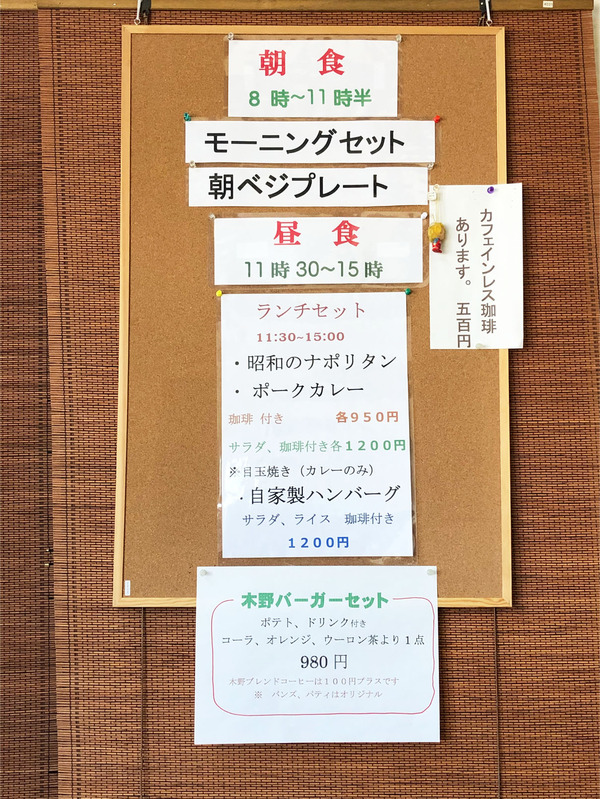 朝 食
8 時～11時半
モーニングセット
朝ベジプレート
昼 食
11時30～15時
カフェインレス珈琲
あります。 五百円
ランチセット
11:30~15:00
・昭和のナポリタン
・ポークカレー
珈琲 付き 各950円
サラダ、珈琲付き各1200円
※目玉焼き（カレーのみ）
・自家製ハンバーグ
サラダ、ライス 珈琲付き
1200円
木野バーガーセット
ポテト、ドリンク付き
コーラ、オレンジ、ウーロン茶より1点
980 円
木野ブレンドコーヒーは100円プラスです
※ バンズ、パティはオリジナル